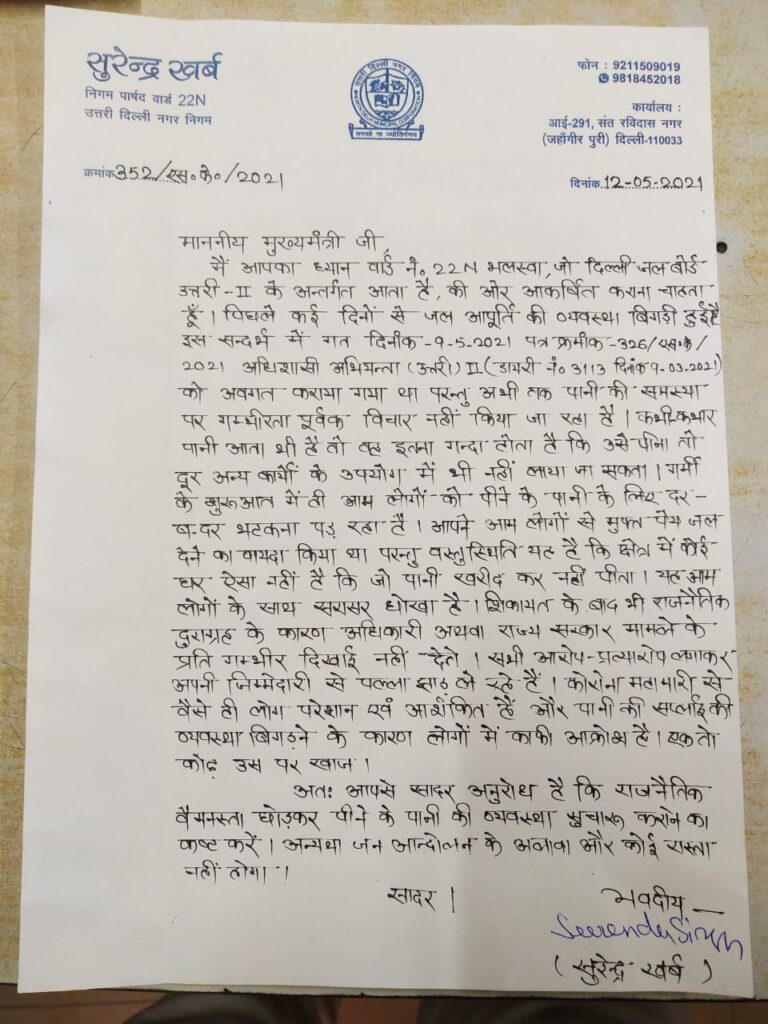 सुरेन्द्र खर्ब
निगम पार्षद वार्ड 22N
उत्तरी दिल्ली नगर निगम
फोन : 9211509019
9818452018
कार्यालय :
आई-291, संत रविदास नगर
(जहाँगीर पुरी) दिल्ली-110033
क्रमांक 352/एस॰के॰/2021
दिनांक 12-05-2021
माननीय मुख्यमंत्री जी,
मैं आपका ध्यान वार्ड नं॰ 22N भलस्वा, जो दिल्ली जल बोर्ड
उत्तरी-II के अन्तर्गत आता है, की ओर आकर्षित कराना चाहता
हूँ। पिछले कई दिनों से जल आपूर्ति की व्यवस्था बिगड़ी हुई है
इस सन्दर्भ में गत दिनाँक-9-5-2021 पत्र क्रमाँक-326/एस॰के॰/
2021 अधिशासी अभियन्ता (उत्तरी) II (डायरी नं॰ 3113 दिनांक 9-03-2021)
को अवगत कराया गया था परन्तु अभी तक पानी की समस्या
पर गम्भीरता पूर्वक विचार नहीं किया जा रहा है। कभी-कभार
पानी आता भी है तो वह इतना गन्दा होता है कि उसे पीना तो
दूर अन्य कार्यों के उपयोग में भी नहीं लाया जा सकता। गर्मी
के शुरूआत में ही आम लोगों को पीने के पानी के लिए दर-
ब-दर भटकना पड़ रहा है। आपने आम लोगों से मुफ्त पेय जल
देने का वायदा किया था परन्तु वस्तुस्थिति यह है कि क्षेत्र में कोई
घर ऐसा नहीं है कि जो पानी खरीद कर नहीं पीता। यह आम
लोगों के साथ सरासर धोखा है। शिकायत के बाद भी राजनैतिक
दुराग्रह के कारण अधिकारी अथवा राज्य सरकार मामले के
प्रति गम्भीर दिखाई नहीं देते। सभी आरोप-प्रत्यारोप लगाकर
अपनी जिम्मेदारी से पल्ला झाड़ ले रहे हैं। कोरोना महामारी से
वैसे ही लोग परेशान एवं आशंकित हैं और पानी की सप्लाई की
व्यवस्था बिगड़ने के कारण लोगों में काफी आक्रोश है। एक तो
कोढ़ उस पर खाज।
अतः आपसे सादर अनुरोध है कि राजनैतिक
वैमनस्ता छोड़कर पीने के पानी की व्यवस्था सुचारू कराने का
कष्ट करें। अन्यथा जन आन्दोलन के अलावा और कोई रास्ता
नहीं होगा।
सादर।
भवदीय
Surender Singh
(सुरेन्द्र खर्ब)